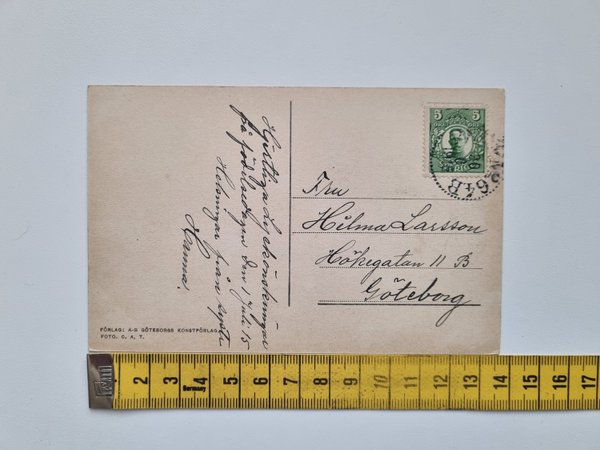 Hjärtliga lyckönskningar
på födelsedagen den 1 Juli 15
Helsningar från
Hanna.
5 5
SVERIGE
64B
Fru
Hilma Larsson
Hökegatan 11 B
Göteborg
FÖRLAG: A-B GÖTEBORGS KONSTFÖRLAG.
FOTO. C. A. T.
2 3 4 5 6 7 8 9 10 11 12 13 14 15 16 17
Germany